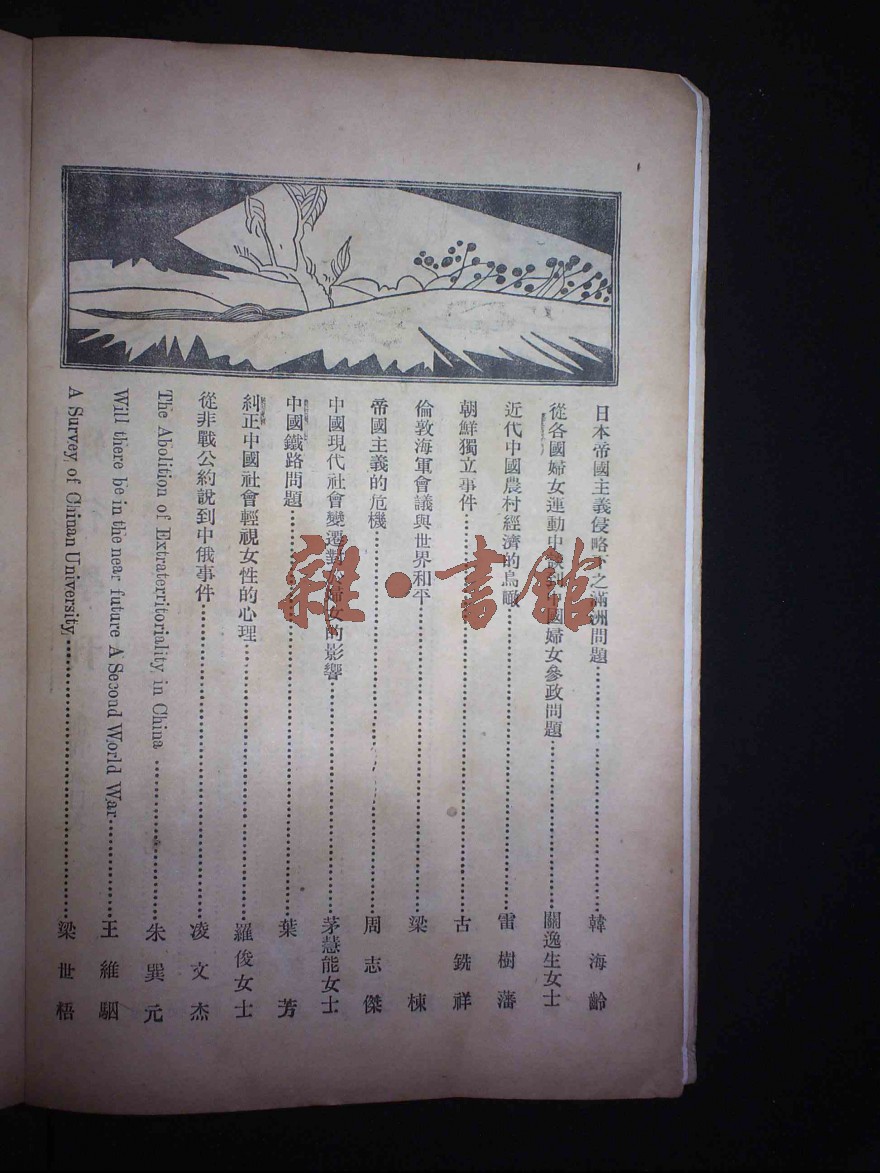 日本帝國主義侵略下之滿洲問題…………韓海齡
從各國婦女運動中談到中國婦女參政問題…………關逸生女士
近代中國農村經濟的鳥瞰…………雷樹藩
朝鮮獨立事件…………古銑祥
倫敦海軍會議與世界和平…………梁棟
帝國主義的危機…………周志傑
中國現代社會變遷對於婦女的影響…………茅慧能女士
中國鐵路問題…………葉芳
糾正中國社會輕視女性的心理…………羅俊女士
從非戰公約說到中俄事件…………凌文杰
The Abolition of Extraterritoriality in China …………朱巽元
Will there be in the near future A Second World War…………王維駰
A Survey of Chinan University…………梁世梧
雜·書館